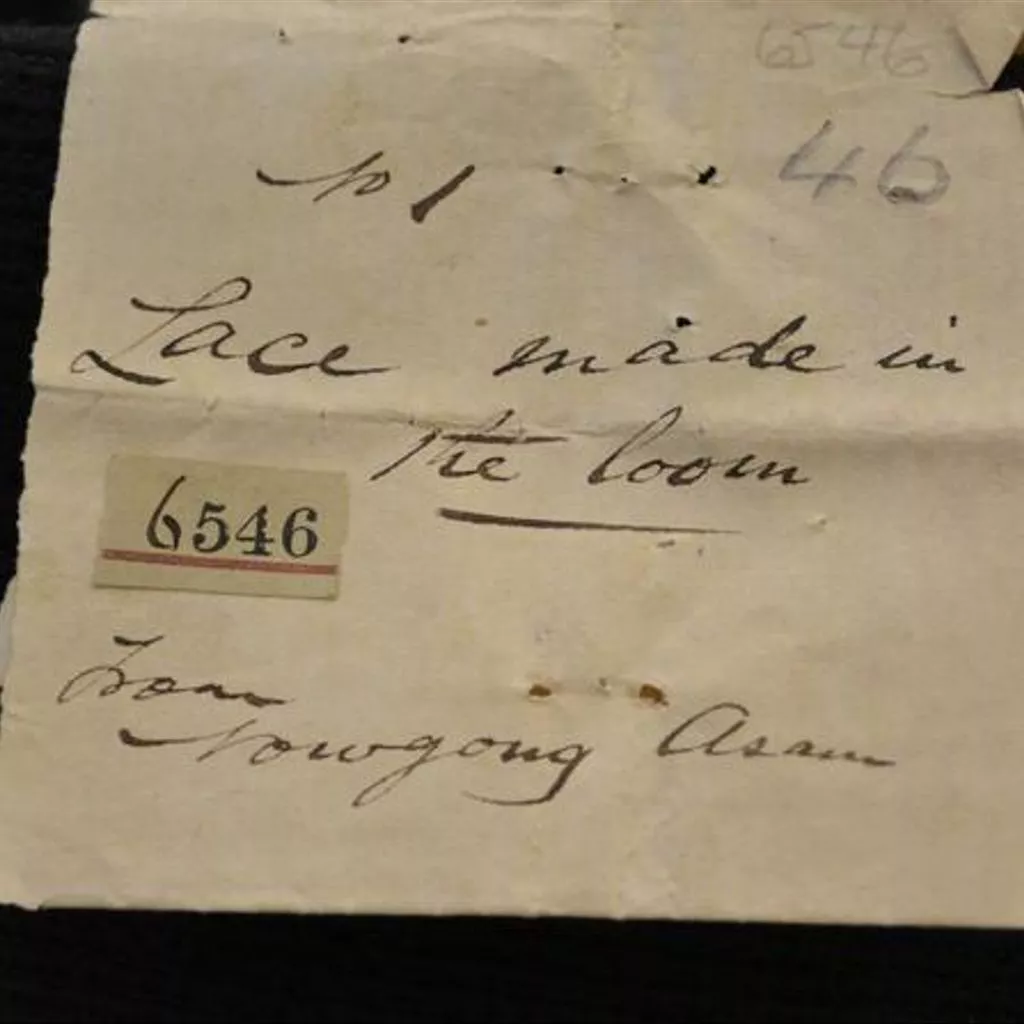 6546
No 1
46
Lace made in
the loom
6546
From
Nowgong Asam